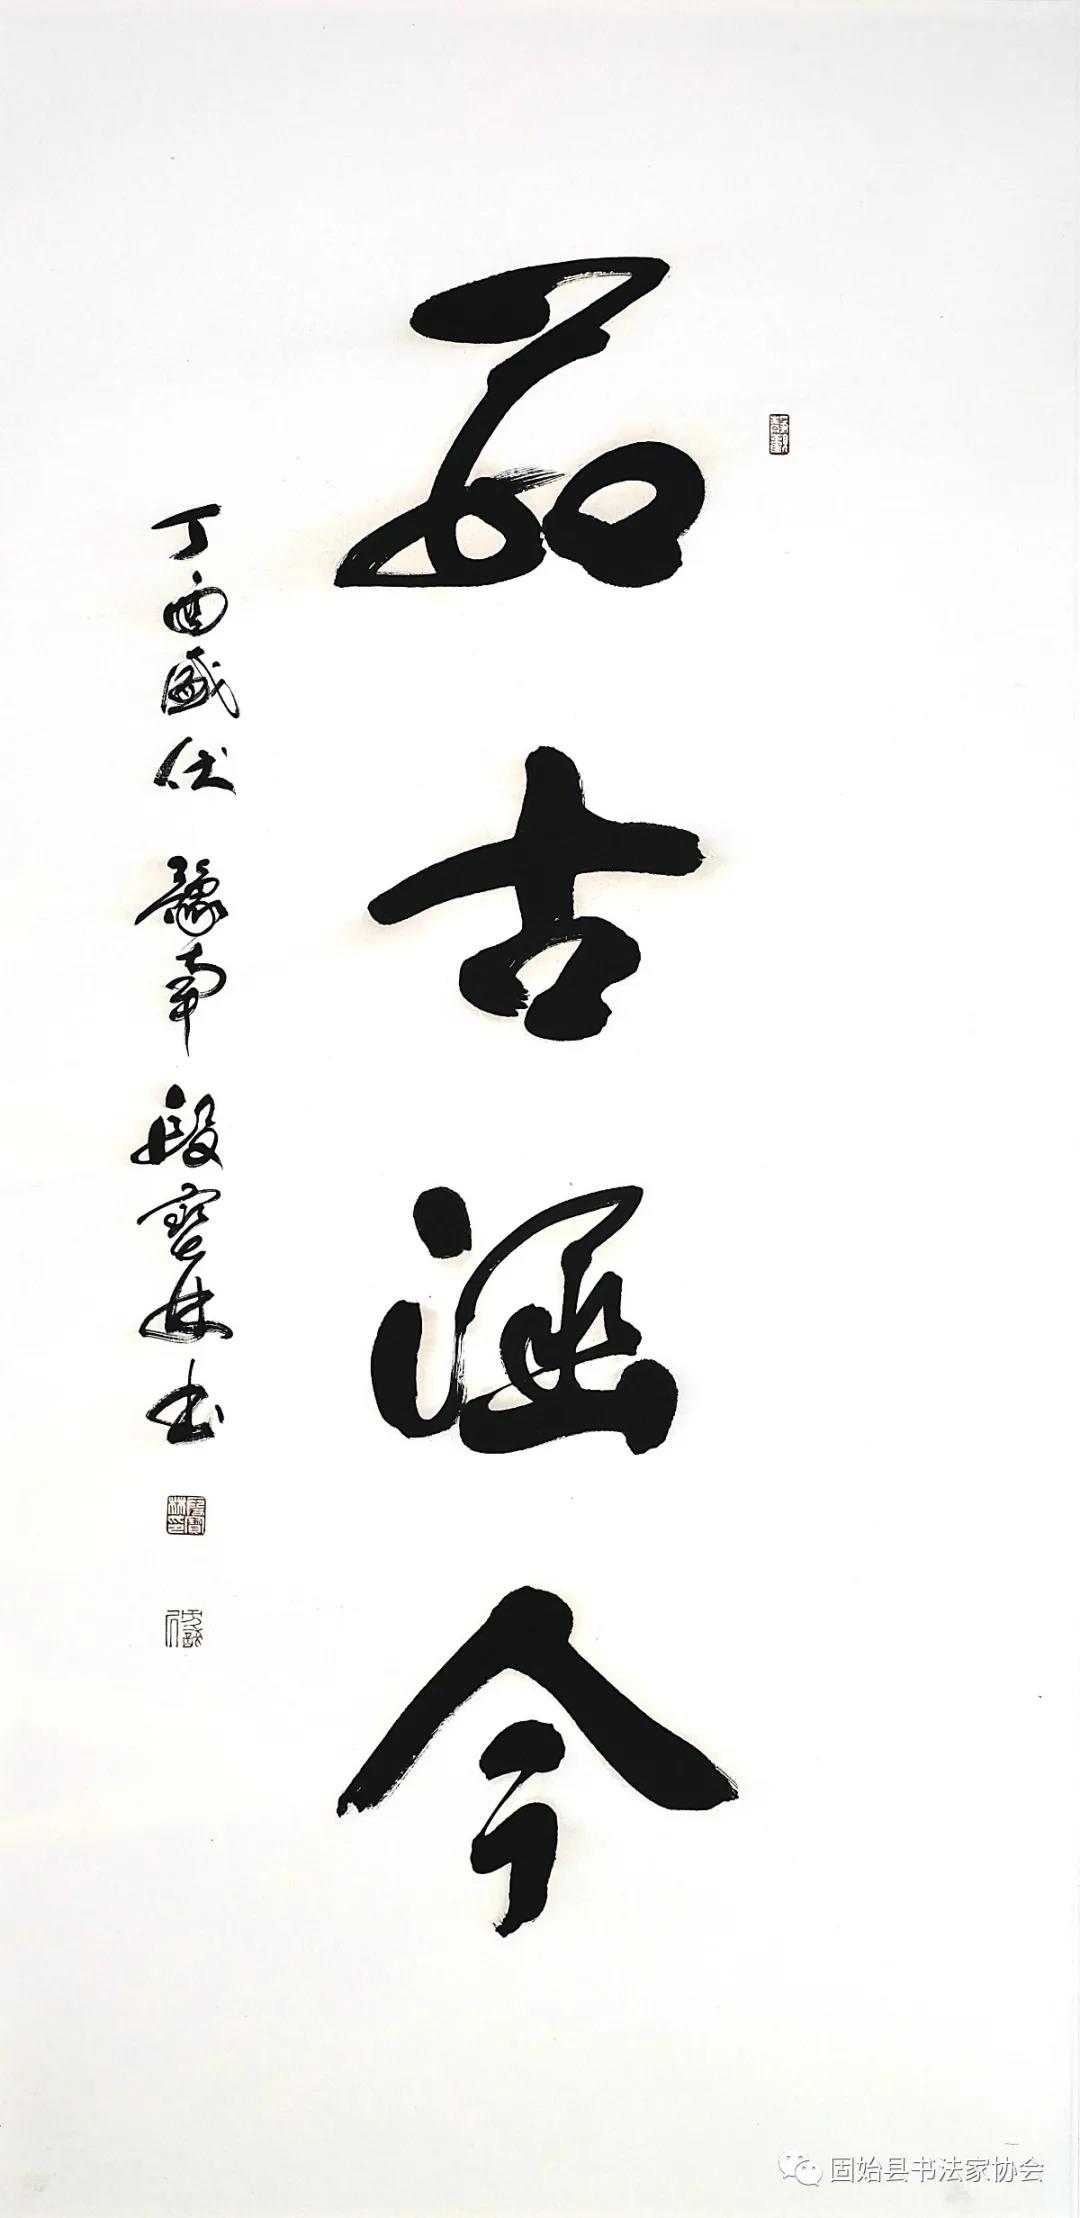 品古涵今
丁酉盛伏 豫南 段寳林书
固始县书法家协会